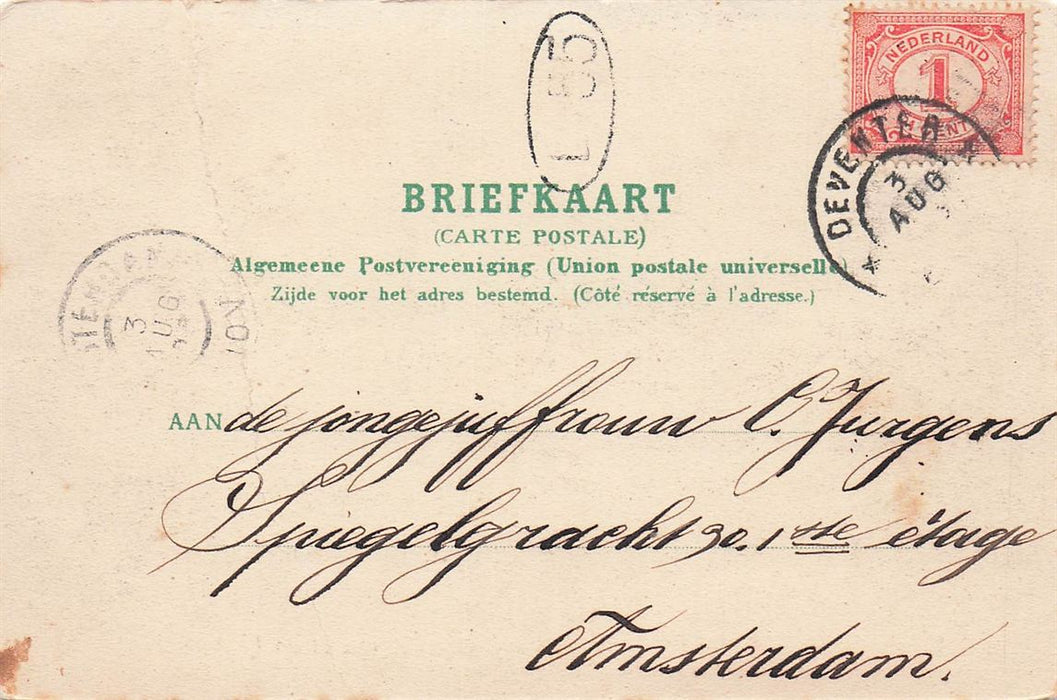 L 35
NEDERLAND
1
CENT
DEVENTER
3
AUG
BRIEFKAART
(CARTE POSTALE)
Algemeene Postvereeniging (Union postale universelle)
Zijde voor het adres bestemd. (Côté réservé à l'adresse.)
3
AUG
AAN de jongejuffrouw C. Jurgens
Spiegelgracht 30. 1ste étage
Amsterdam.